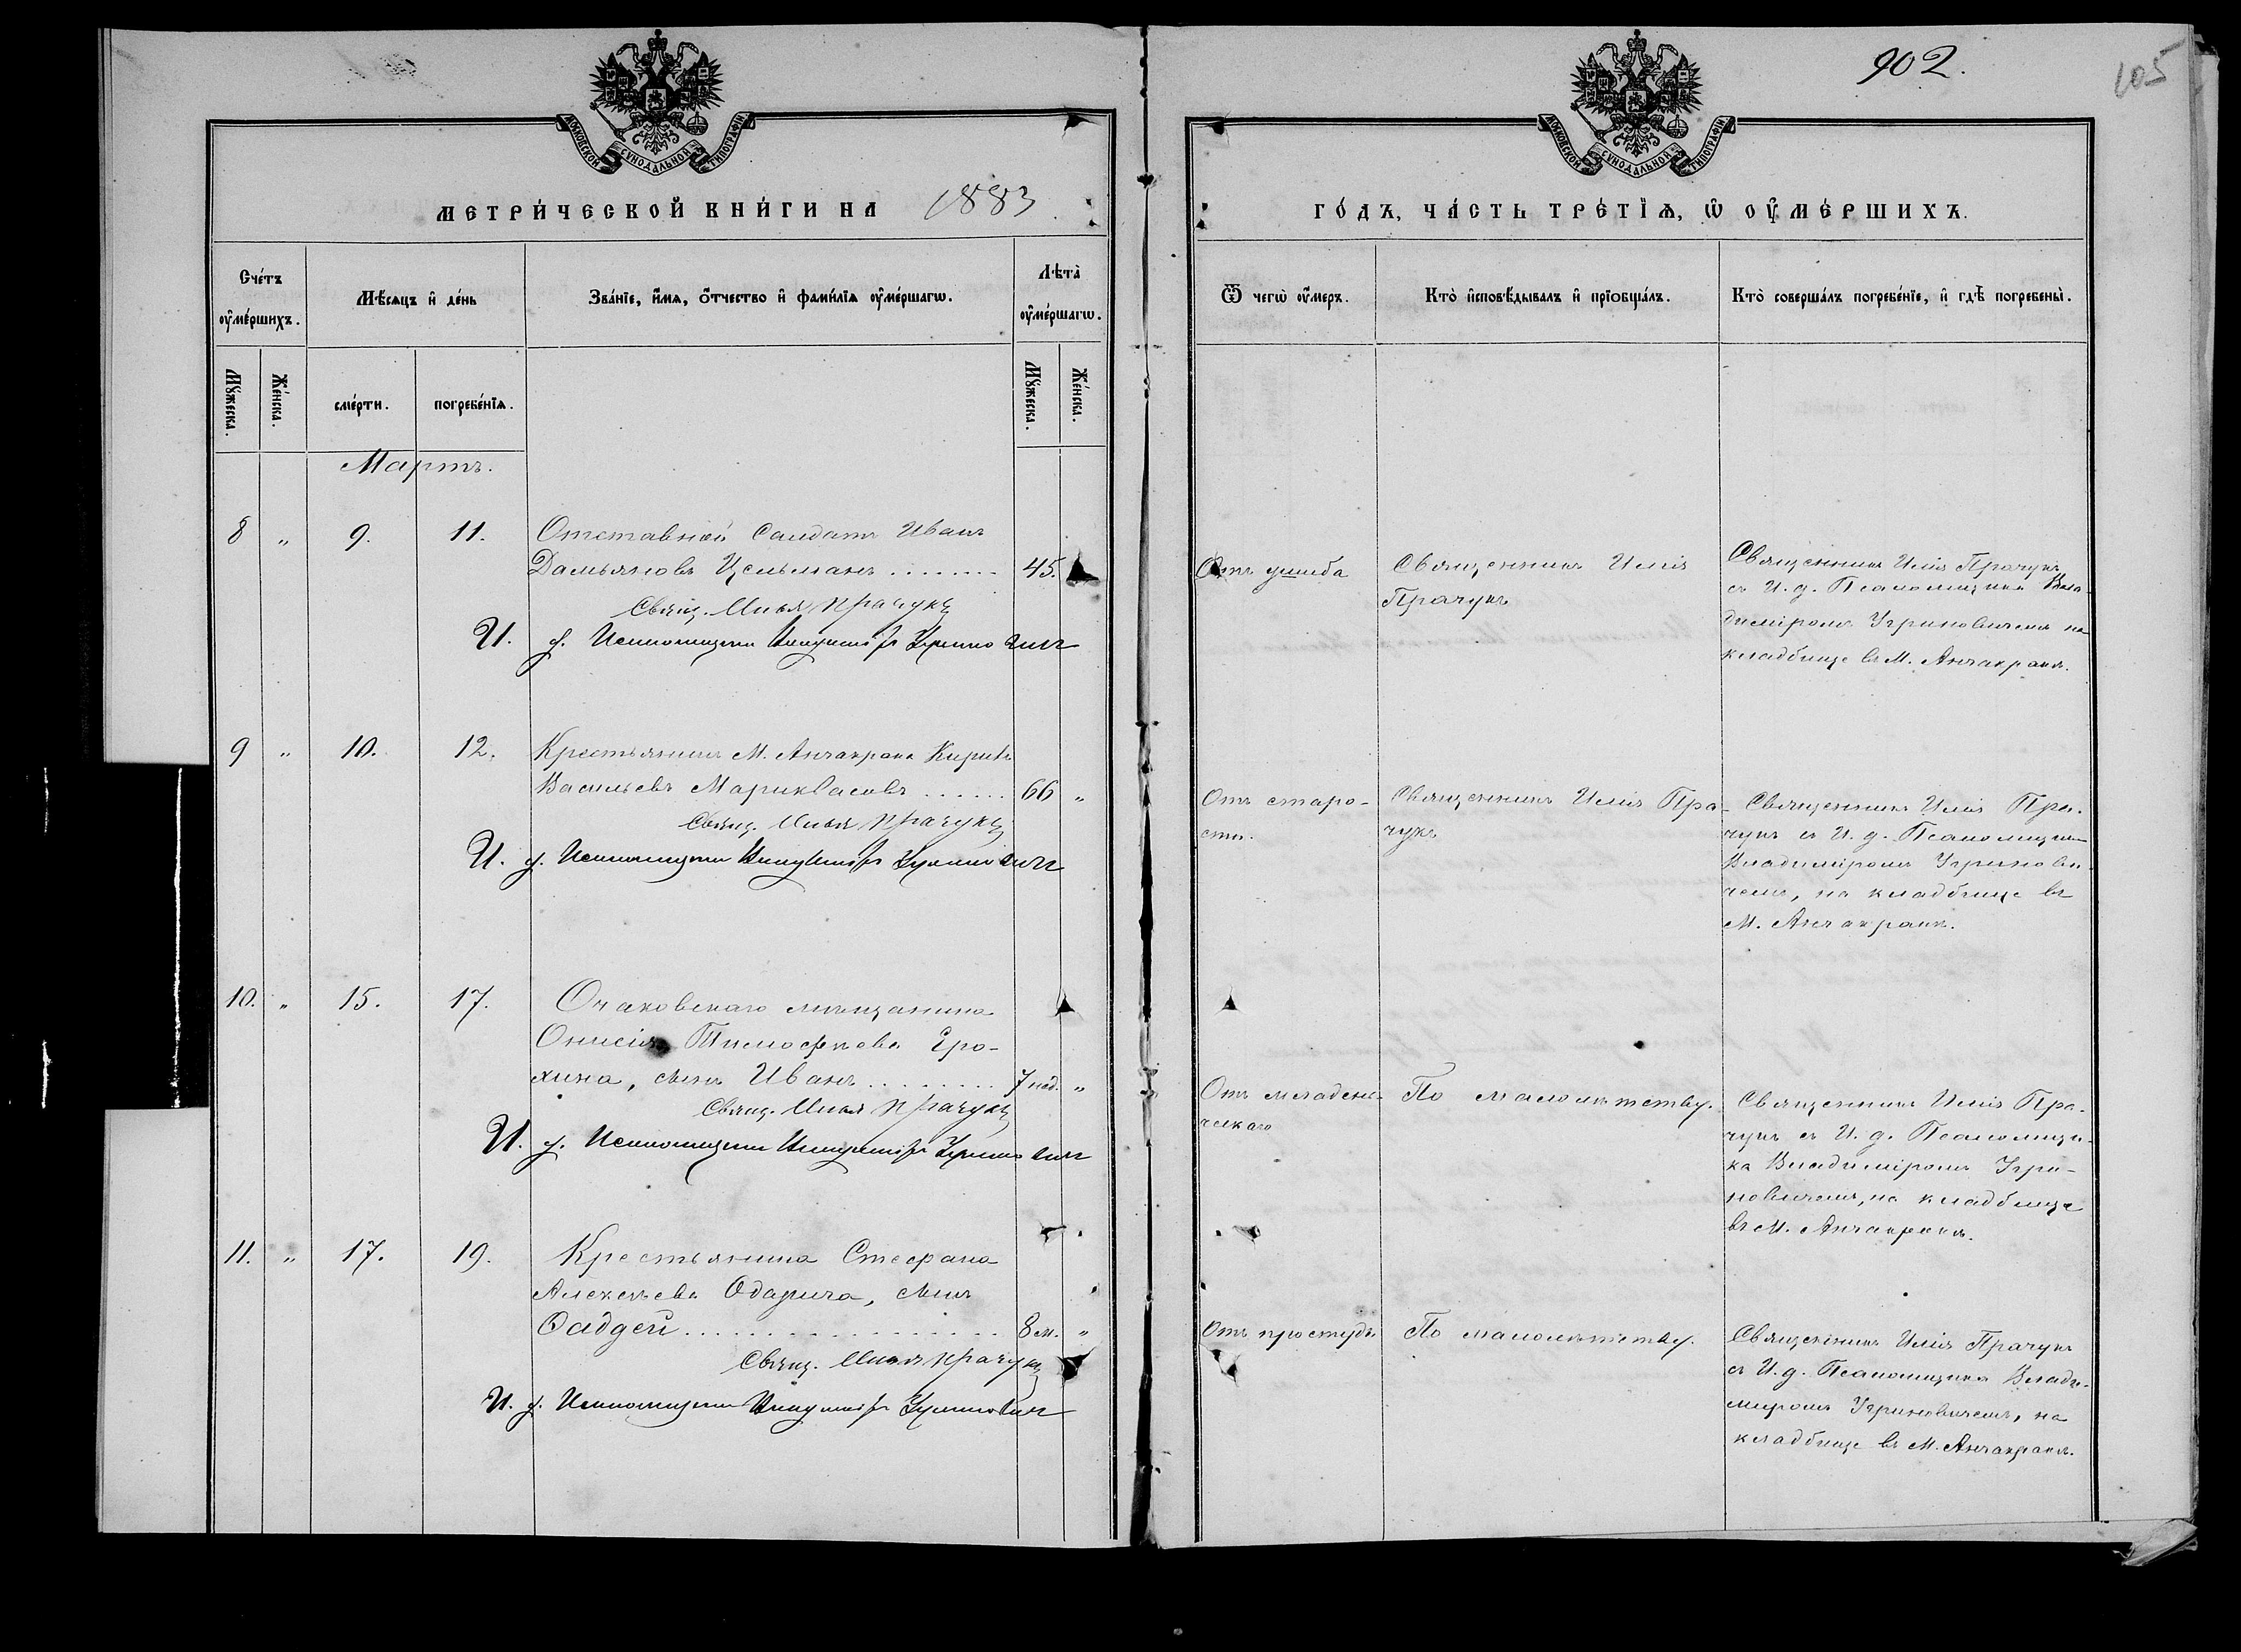 902.
105
МОСКОВСКОЙ СУНОДАЛЬНОЙ ТИПОГРАФІИ
МОСКОВСКОЙ СУНОДАЛЬНОЙ ТИПОГРАФІИ
МЕТРИ́ЧЕСКОЙ КНИ́ГИ НА 1883
ГО́ДЪ, ЧА́СТЬ ТРЕ́ТІѦ, Ѡ҆ ОУ҆МЕ́РШИХЪ.
Сче́тъ оу҆ме́ршихъ.
Мѣ́сяцъ и҆ де́нь
Зва́нїе, и҆́мя, ѻ҆́тчество и҆ фами́лїя оу҆ме́ршагѡ.
Лѣта̀ оу҆ме́ршагѡ.
Ѿ чегѡ̀ оу҆́меръ.
Кто̀ и҆сповѣ́дывалъ и҆ прїобща́лъ.
Кто̀ соверша́лъ погребе́нїе, и҆ гдѣ̀ погребены̀.
Мꙋ́жеска.
Же́нска.
сме́рти.
погребе́нїя.
Мꙋ́жеска.
Же́нска.
Мартъ.
8 „ 9. 11. Отставной Салдатъ Иванъ
Дамьяновъ Цельманъ ........ 45.
Свящ. Илья Прачукъ
И. д. Псаломщика Владиміръ Угриновичъ
Отъ ушиба
Священникъ Илія
Прачукъ
Священникъ Илія Прачукъ
съ И. д. Псаломщика Вла-
диміромъ Угриновичемъ на
кладбище въ М. Анчакракѣ.
9 „ 10. 12. Крестьянинъ М. Анчакрака Кирилъ
Васильевъ Мариквасовъ ...... 66 „
Свящ. Илья Прачукъ
И. д. Псаломщика Владиміръ Угриновичъ
Отъ старо-
сти.
Священникъ Илія Пра-
чукъ
Священникъ Илія Пра-
чукъ съ И. д. Псаломщика
Владиміромъ Угринови-
чемъ, на кладбище въ
М. Анчакракѣ.
10. „ 15. 17. Очаковскаго мѣщанина
Онисія Тимофѣева Еро-
хина, сынъ Иванъ ........ 7 нед. „
Свящ. Илья Прачукъ
И. д. Псаломщика Владиміръ Угриновичъ
Отъ младен-
ческаго
По малолѣтству.
Священникъ Илія Пра-
чукъ съ И. д. Псаломщи-
ка Владиміромъ Угри-
новичемъ, на кладбище
въ М. Анчакракѣ.
11. „ 17. 19. Крестьянина Стефана
Алексѣева Одарича, сынъ
Фадѣй .................. 8 м. „
Свящ. Илья Прачукъ
И. д. Псаломщика Владиміръ Угриновичъ
Отъ простуды
По малолѣтству.
Священникъ Илія Прачукъ
съ И. д. Псаломщика Влади-
миромъ Угриновичемъ, на
кладбище въ М. Анчакракѣ.